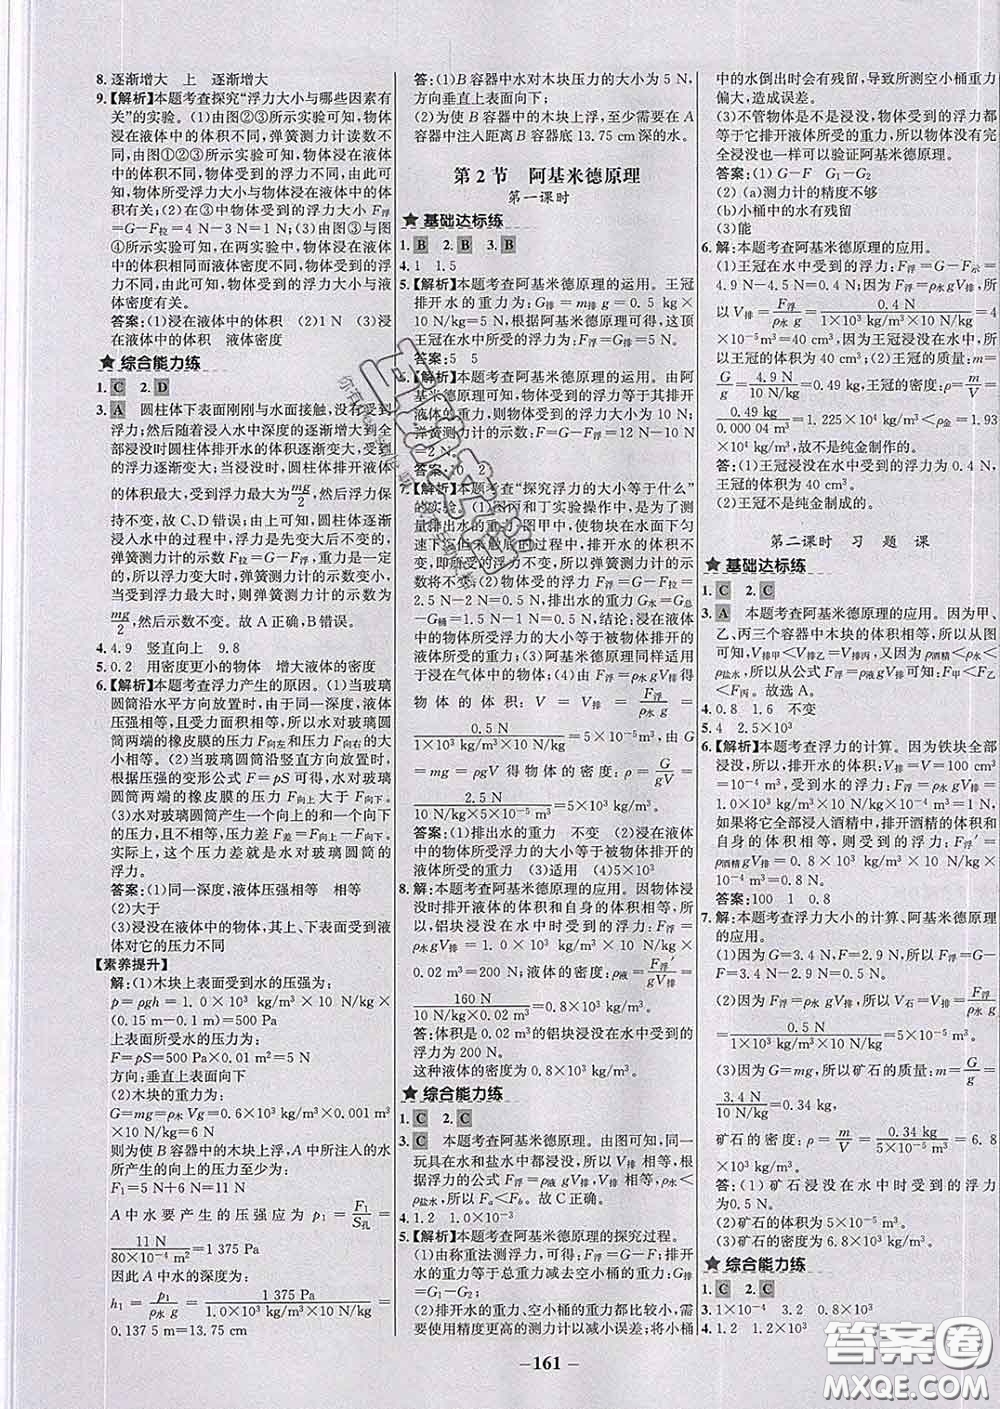 8. 逐渐增大　上　逐渐增大
9. 【解析】本题考查探究“浮力大小与哪些因素有
关”的实验。(1)由图②③所示实验可知,物体
浸在液体中的体积不同,弹簧测力计读数不
同,由图①②③所示实验可知,物体浸在液体
中的体积不同,物体受到的浮力不同,由此可
知,物体所受浮力大小与物体浸在液体中的体
积有关;(2)在③中物体受到的浮力大小 F浮
=G－F拉=4 N－3 N=1 N;(3)由图③与图
④所示实验可知,在两实验中,物体浸在液体
的体积相同而液体密度不同,物体受到的浮力
不同,由此可知,物体受到的浮力大小与液体
密度有关。
答案:(1)浸在液体中的体积　(2)1 N　(3)浸
在液体中的体积　液体密度
★ 综合能力练
1. C　2. D
3. A　圆柱体下表面刚刚与水面接触,没有受到
浮力;然后随着浸入水中深度的逐渐增大到全
部浸没时圆柱体排开液体的体积逐渐变大,浮
力逐渐变大;当浸没时圆柱体排开液体
的体积最大,受到浮力最大为mg/2,然后浮力保
持不变,故 C、D 错误;由于圆柱体逐渐
浸入水中的过程,浮力是先变大后不变的,
弹簧测力计的示数 F拉=G－F浮,重力是一定
的,所以浮力变大时,弹簧测力计的示数变小;
浮力不变时,弹簧测力计的示数不变,其大小为
mg/2,然后示数不变。故 A 正确,B 错误。
4. 4.9　竖直向上　9.8
5. 0.2　用密度更小的物体　增大液体的密度
6. 【解析】本题考查浮力产生的原因。(1)当玻璃
圆筒沿水平方向放置时,由于同一深度,液体
压强相等,且受力面积大小相等,所以水对玻
璃圆筒两端的橡皮膜的压力 F向左和 F向右的大
小相等。(2)当玻璃圆筒沿竖直方向放置时,
根据压强的变形公式 F=pS 可得,水对玻璃
圆筒两端的橡皮膜的压力 F向上大于 F向下。
(3)水对玻璃圆筒产生一个向上的和一个向下
的压力,会产生压力差 F差=F向上－F向下。
实际上,这个压力差就是水对玻璃圆筒的
浮力。
答案:(1)同一深度,液体压强相等　相等
(2)大于
(3)浸没在液体中的物体,其上、下表面受到液
体对它的压力不同
【素养提升】
解:(1)木块上表面受到水的压强为:
p=ρgh=1.0×10³ kg/m³×10 N/kg×
(0.15 m－0.1 m)=500 Pa
上表面所受水的压力为:
F=pS=500 Pa×0.01 m²=5 N
方向:垂直上表面向下
(2)木块的重力为:
G=mg=ρ水 Vg=0.6×10³ kg/m³×0.001 m³
×10 N/kg=6 N
则为使 B 容器中的木块上浮,A 中所注入的水
所产生的向上的压力至少为:
F₁=5 N+6 N=11 N
A 中水要产生的压强应为 p₁=F₁/S孔=
11 N/(80×10⁻⁴ m²)=1 375 Pa
因此 A 中水的深度为:
h₁=p₁/(ρ水 g)=1 375 Pa/(1.0×10³ kg/m³×10 N/kg)=
0.137 5 m=13.75 cm
答:(1)B 容器中水对木块压力的大小为 5 N,
方向垂直上表面向下
(2)为使 B 容器中的木块上浮,至少需要在 A
容器中注入距离 B 容器底 13.75 cm 深的水。
第 2 节　阿基米德原理
第一课时
★ 基础达标练
1. B　2. B　3. B
4. 1　1.5
5. 【解析】本题考查阿基米德原理的运用。王冠
排开水的重力为:G排=m排 g=0.5 kg×
10 N/kg=5 N,根据阿基米德原理可得,这顶
王冠在水中所受的浮力为:F浮=G排=5 N。
答案:5　5
6. 【解析】本题考查阿基米德原理的运用。由阿
基米德原理可知,物体受到的浮力等于其排开
液体的重力,所以,物体受到的浮力为 10 N;
弹簧测力计的示数:F=G－F浮=12 N－10 N
=2 N。
答案:10　2
7. 【解析】本题考查“探究浮力的大小等于什么”
的实验。(1)图丙和丁实验操作中,是为了测
量排出水的重力;图甲中,使物块在水面下匀
速下降但未触底的过程中,排开水的体积不
变,即所受的浮力不变,所以弹簧测力计的示
数将不变。(2)物体受的浮力 F浮=G－F=
2.5 N－2 N=0.5 N,排出水的重力 G水=G总
－G桶=1.5 N－1 N=0.5 N,结论:浸在液体中
的物体所受浮力的大小等于被物体排开的液
体所受的重力;(3)阿基米德原理同样适用于
浸在气体中的物体;(4)由 F浮=G排=ρ水 gV排
得物体的体积:V=V排=F浮/(ρ水 g)=
0.5 N/(1×10³ kg/m³×10 N/kg)=5×10⁻⁵ m³;由 G
=mg=ρgV 得物体的密度:ρ=G/(gV)=
2.5 N/(10 N/kg×5×10⁻⁵ m³)=5×10³ kg/m³。
答案:(1)排出水的重力　不变　(2)浸在液体
中的物体所受浮力的大小等于被物体排开的
液体所受的重力　(3)适用　(4)5×10³
8. 解:本题考查阿基米德原理的应用。因物体浸
没时排开液体的体积和自身的体积相等,所
以,铝块浸没在水中时受到的浮力:F浮=
ρ水 gV排=1.0×10³ kg/m³×10 N/kg×
0.02 m³=200 N;液体的密度:ρ液=F浮′/(gV排)=
160 N/(10 N/kg×0.02 m³)=0.8×10³ kg/m³。
答:体积是 0.02 m³ 的铝块浸没在水中受到的
浮力为 200 N。
这种液体的密度为 0.8×10³ kg/m³。
★ 综合能力练
1. C　2. C
3. C　本题考查阿基米德原理。由图可知,同一
玩具在水和盐水中都浸没,所以 V排 相等,根
据浮力的公式 F浮=ρ液 gV排可知,因为 ρ水<
ρ盐水,所以 Fₐ<F_b。故 C 正确。
4. 1.2　1.0×10⁻³
5. 【解析】本题考查阿基米德原理的探究过程。
(1)由称重法测浮力,可得:F浮=G－F;排开
水的重力等于总重力减去空小桶的重力:G排
=G₁－G₂;
(2)排开水的重力、空小桶的重力都比较小,需
要使用精度更高的测力计以减小误差;将小桶
中的水倒出时会有残留,导致所测空小桶重力
偏大,造成误差。
(3)不管物体是不是浸没,受到的浮力大小都
等于它排开液体所受的重力,所以物体没有完
全浸没也一样可以验证阿基米德原理。
答案:(1) G－F　G₁－G₂
(2) (a)测力计的精度不够
(b)小桶中的水有残留
(3)能
6. 解:本题考查阿基米德原理的应用。
(1)王冠在水中受到的浮力:F浮=G－F示=
4.9 N－4.5 N=0.4 N;因为 F浮=ρ水 gV排,所
以 V排=F浮/(ρ水 g)=0.4 N/(1×10³ kg/m³×10 N/kg)=
4×10⁻⁵ m³=40 cm³,因为王冠浸没在水中,所
以王冠的体积为 40 cm³;(2)王冠的质量:m=
G/g=4.9 N/10 N/kg=0.49 kg,王冠的密度:ρ=m/V=
0.49 kg/0.000 04 m³=1.225×10⁴ kg/m³<ρ金=1.93
×10⁴ kg/m³,故不是纯金制作的。
答:(1)王冠浸没在水中受到的浮力为 0.4 N,
王冠的体积为 40 cm³。
(2)王冠不是纯金制成的。
第二课时　习题课
★ 基础达标练
1. C　2. C
3. A　本题考查阿基米德原理的应用。因为甲、
乙、丙三个容器中木块的体积相等,所以从图
可知,V排甲<V排乙=V排丙,又因为 ρ酒精<ρ水<
ρ盐水,所以从公式 F浮=ρ液 gV排可知:F甲<F乙
<F丙。故选 A。
4. 0.8　1.6　不变
5. 4　2.5×10³
6. 【解析】本题考查浮力的计算。因为铁块全部
浸没,所以,排开水的体积:V排=V=100 cm³
=10⁻⁴ m³,受到水的浮力:F浮=ρ水 gV排=
1.0×10³ kg/m³×10 N/kg×10⁻⁴ m³=1 N;
如果将它全部浸入酒精中,排开酒精的体积和
自身的体积相等,则受到的浮力:F浮′=
ρ酒精 gV排=0.8×10³ kg/m³×10 N/kg×
10⁻⁴ m³=0.8 N。
答案:100　1　0.8
7. 解:本题考查浮力大小的计算、阿基米德原理
的应用。
(1)因为 G=3.4 N,F=2.9 N,所以 F浮=G－
F=3.4 N－2.9 N=0.5 N。
(2)因为 F浮=ρ水 gV排,所以 V石=V排=F浮/(ρ水 g)
=0.5 N/(1×10³ kg/m³×10 N/kg)=5×10⁻⁵ m³
(3)因为 G=mg,所以矿石的质量:m=G/g=
3.4 N/10 N/kg=0.34 kg,
矿石的密度:ρ=m/V=0.34 kg/(5×10⁻⁵ m³)=6.8
×10³ kg/m³。
答:(1)矿石浸没在水中时受到的浮力
为0.5 N。
(2)矿石的体积为 5×10⁻⁵ m³。
(3)矿石的密度为 6.8×10³ kg/m³。
★ 综合能力练
1. C　2. C
3. 1×10⁻⁴　3.2　0.8×10³
4. 1.2　1.2×10³
－161－
答案圈
MXQE.COM